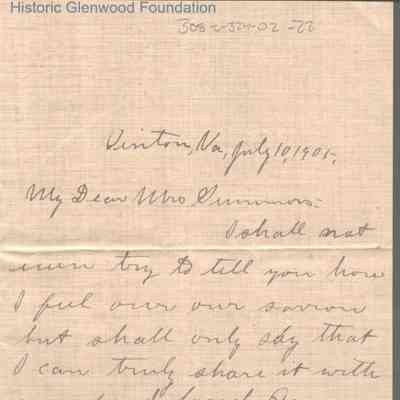 Historic Glenwood Foundation
Vinton, Va, July 10, 1905.
My Dear Mrs Simmons:
I shall not
even try to tell you how
I feel over our sorrow
but shall only say that
I can truly share it with